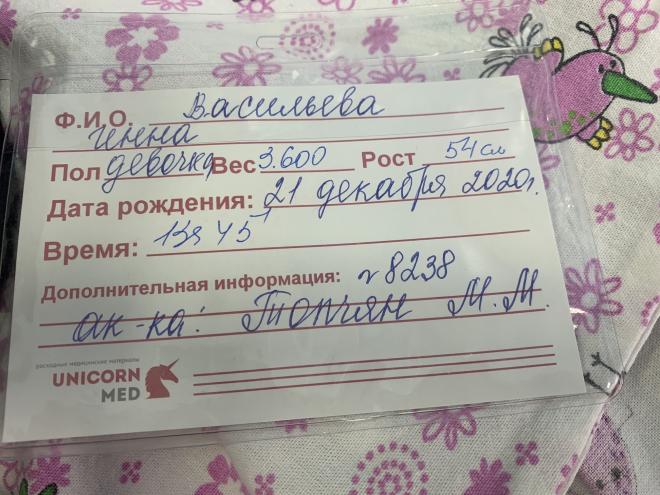 Ф.И.О. Васильева
Инна
Пол девочка Вес 3.600 Рост 54 см
Дата рождения: 21 декабря 2020г.
Время: 45
Дополнительная информация: №8238
ак-ка: Топчян М.М.
расходные медицинские материалы
UNICORN
MED